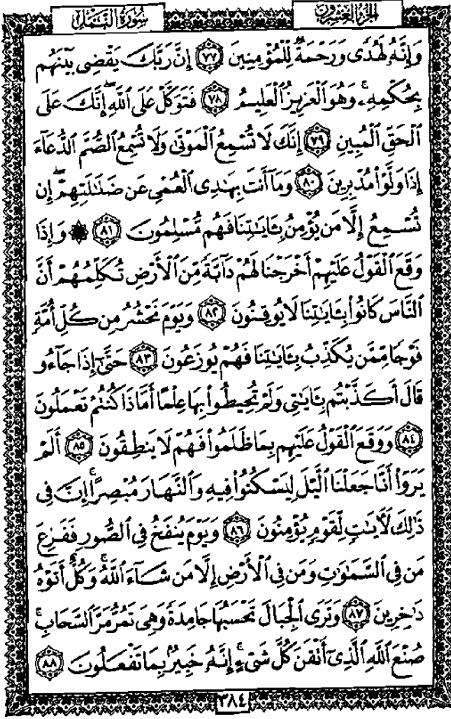 الجزء العشرون سورة النمل
وَإِنَّهُۥ لَهُدًى وَرَحْمَةٌ لِّلْمُؤْمِنِينَ ٧٧ إِنَّ رَبَّكَ يَقْضِى بَيْنَهُم
بِحُكْمِهِۦ وَهُوَ ٱلْعَزِيزُ ٱلْعَلِيمُ ٧٨ فَتَوَكَّلْ عَلَى ٱللَّهِ إِنَّكَ عَلَى
ٱلْحَقِّ ٱلْمُبِينِ ٧٩ إِنَّكَ لَا تُسْمِعُ ٱلْمَوْتَىٰ وَلَا تُسْمِعُ ٱلصُّمَّ ٱلدُّعَآءَ
إِذَا وَلَّوْا۟ مُدْبِرِينَ ٨٠ وَمَآ أَنتَ بِهَـٰدِى ٱلْعُمْىِ عَن ضَلَـٰلَتِهِمْ ۖ إِن
تُسْمِعُ إِلَّا مَن يُؤْمِنُ بِـَٔايَـٰتِنَا فَهُم مُّسْلِمُونَ ٨١ ۞ وَإِذَا
وَقَعَ ٱلْقَوْلُ عَلَيْهِمْ أَخْرَجْنَا لَهُمْ دَآبَّةً مِّنَ ٱلْأَرْضِ تُكَلِّمُهُمْ أَنَّ
ٱلنَّاسَ كَانُوا۟ بِـَٔايَـٰتِنَا لَا يُوقِنُونَ ٨٢ وَيَوْمَ نَحْشُرُ مِن كُلِّ أُمَّةٍ
فَوْجًا مِّمَّن يُكَذِّبُ بِـَٔايَـٰتِنَا فَهُمْ يُوزَعُونَ ٨٣ حَتَّىٰٓ إِذَا جَآءُو
قَالَ أَكَذَّبْتُم بِـَٔايَـٰتِى وَلَمْ تُحِيطُوا۟ بِهَا عِلْمًا أَمَّاذَا كُنتُمْ تَعْمَلُونَ
٨٤ وَوَقَعَ ٱلْقَوْلُ عَلَيْهِم بِمَا ظَلَمُوا۟ فَهُمْ لَا يَنطِقُونَ ٨٥ أَلَمْ
يَرَوْا۟ أَنَّا جَعَلْنَا ٱلَّيْلَ لِيَسْكُنُوا۟ فِيهِ وَٱلنَّهَارَ مُبْصِرًا ۚ إِنَّ فِى
ذَٰلِكَ لَـَٔايَـٰتٍ لِّقَوْمٍ يُؤْمِنُونَ ٨٦ وَيَوْمَ يُنفَخُ فِى ٱلصُّورِ فَفَزِعَ
مَن فِى ٱلسَّمَـٰوَٰتِ وَمَن فِى ٱلْأَرْضِ إِلَّا مَن شَآءَ ٱللَّهُ ۚ وَكُلٌّ أَتَوْهُ
دَٰخِرِينَ ٨٧ وَتَرَى ٱلْجِبَالَ تَحْسَبُهَا جَامِدَةً وَهِىَ تَمُرُّ مَرَّ ٱلسَّحَابِ ۚ
صُنْعَ ٱللَّهِ ٱلَّذِىٓ أَتْقَنَ كُلَّ شَىْءٍ ۚ إِنَّهُۥ خَبِيرٌۢ بِمَا تَفْعَلُونَ ٨٨
٣٨٤